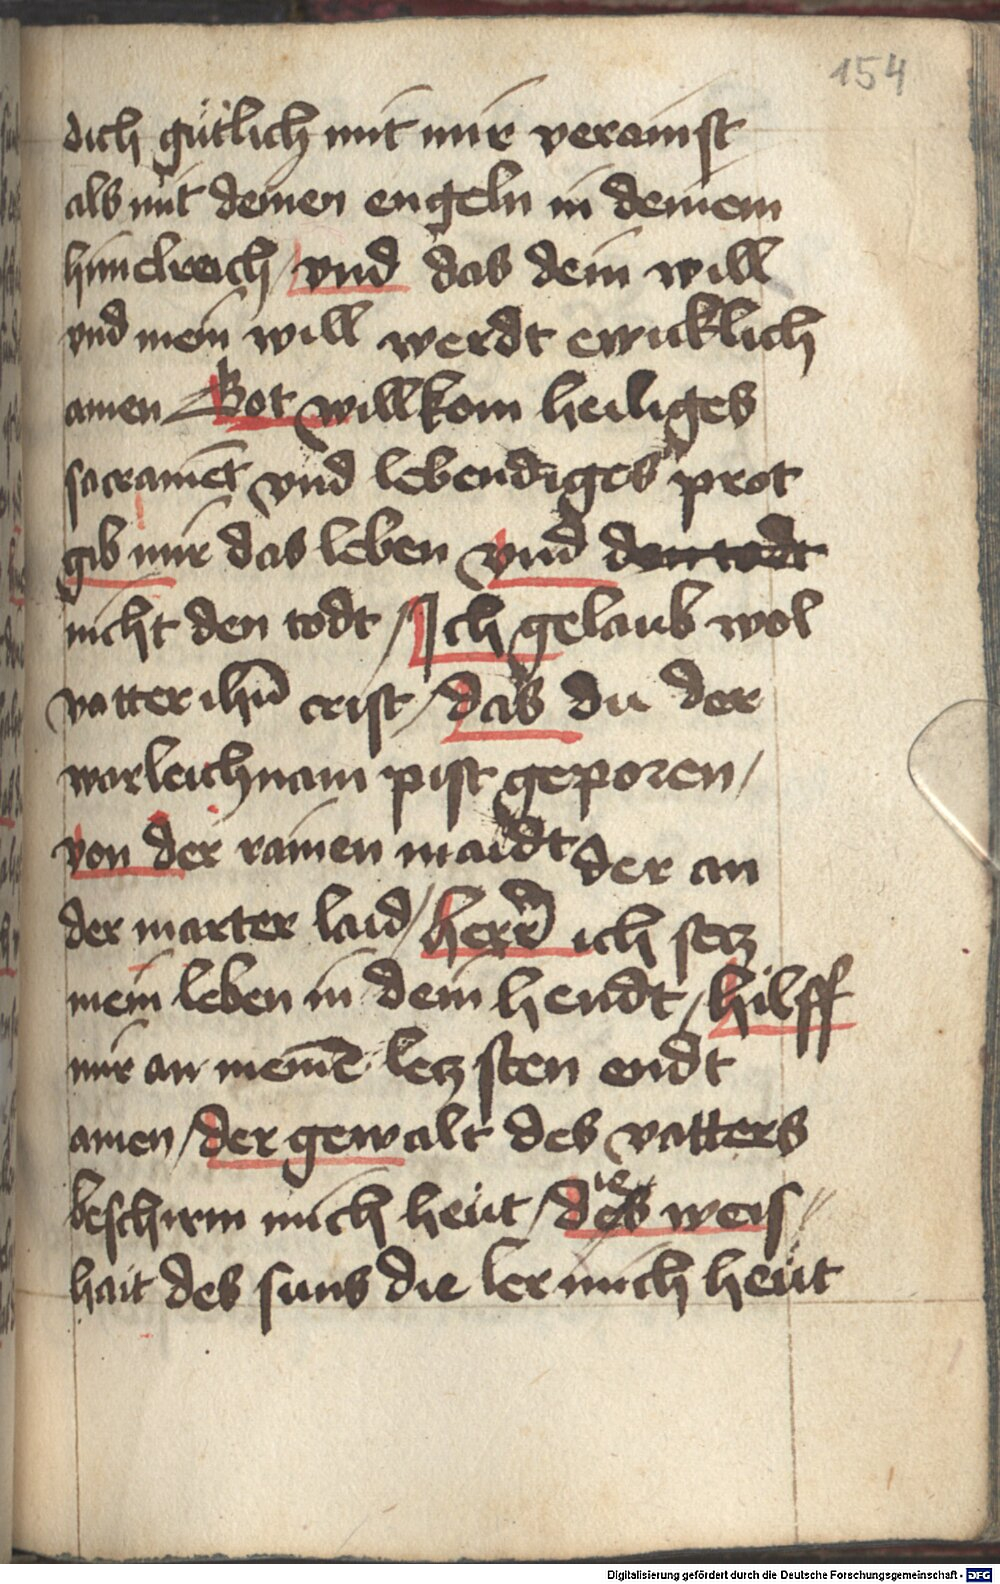 154
dich gütlich mit mir verainst
als mit deinen engeln in deinem
himelreich / vnd das dein will
vnd mein will werdt ewicklich
amen Got willkom heiliges
sacramēt vnd lebendiges prot
gib mir das leben vnd den todt
nicht den todt / Ich gelaub wol
vatter ihū crist / das du der
warleichnam pist geporen /
von der rainen maidt der an
der marter laid / herr ich secz
mein leben in dein hendt / hilff
mir an meinē leczsten endt
amen / der gewalt des vatters
beschirm mich heüt / die weis //
hait des suns die ler mich heüt
Digitalisierung gefördert durch die Deutsche Forschungsgemeinschaft - DFG